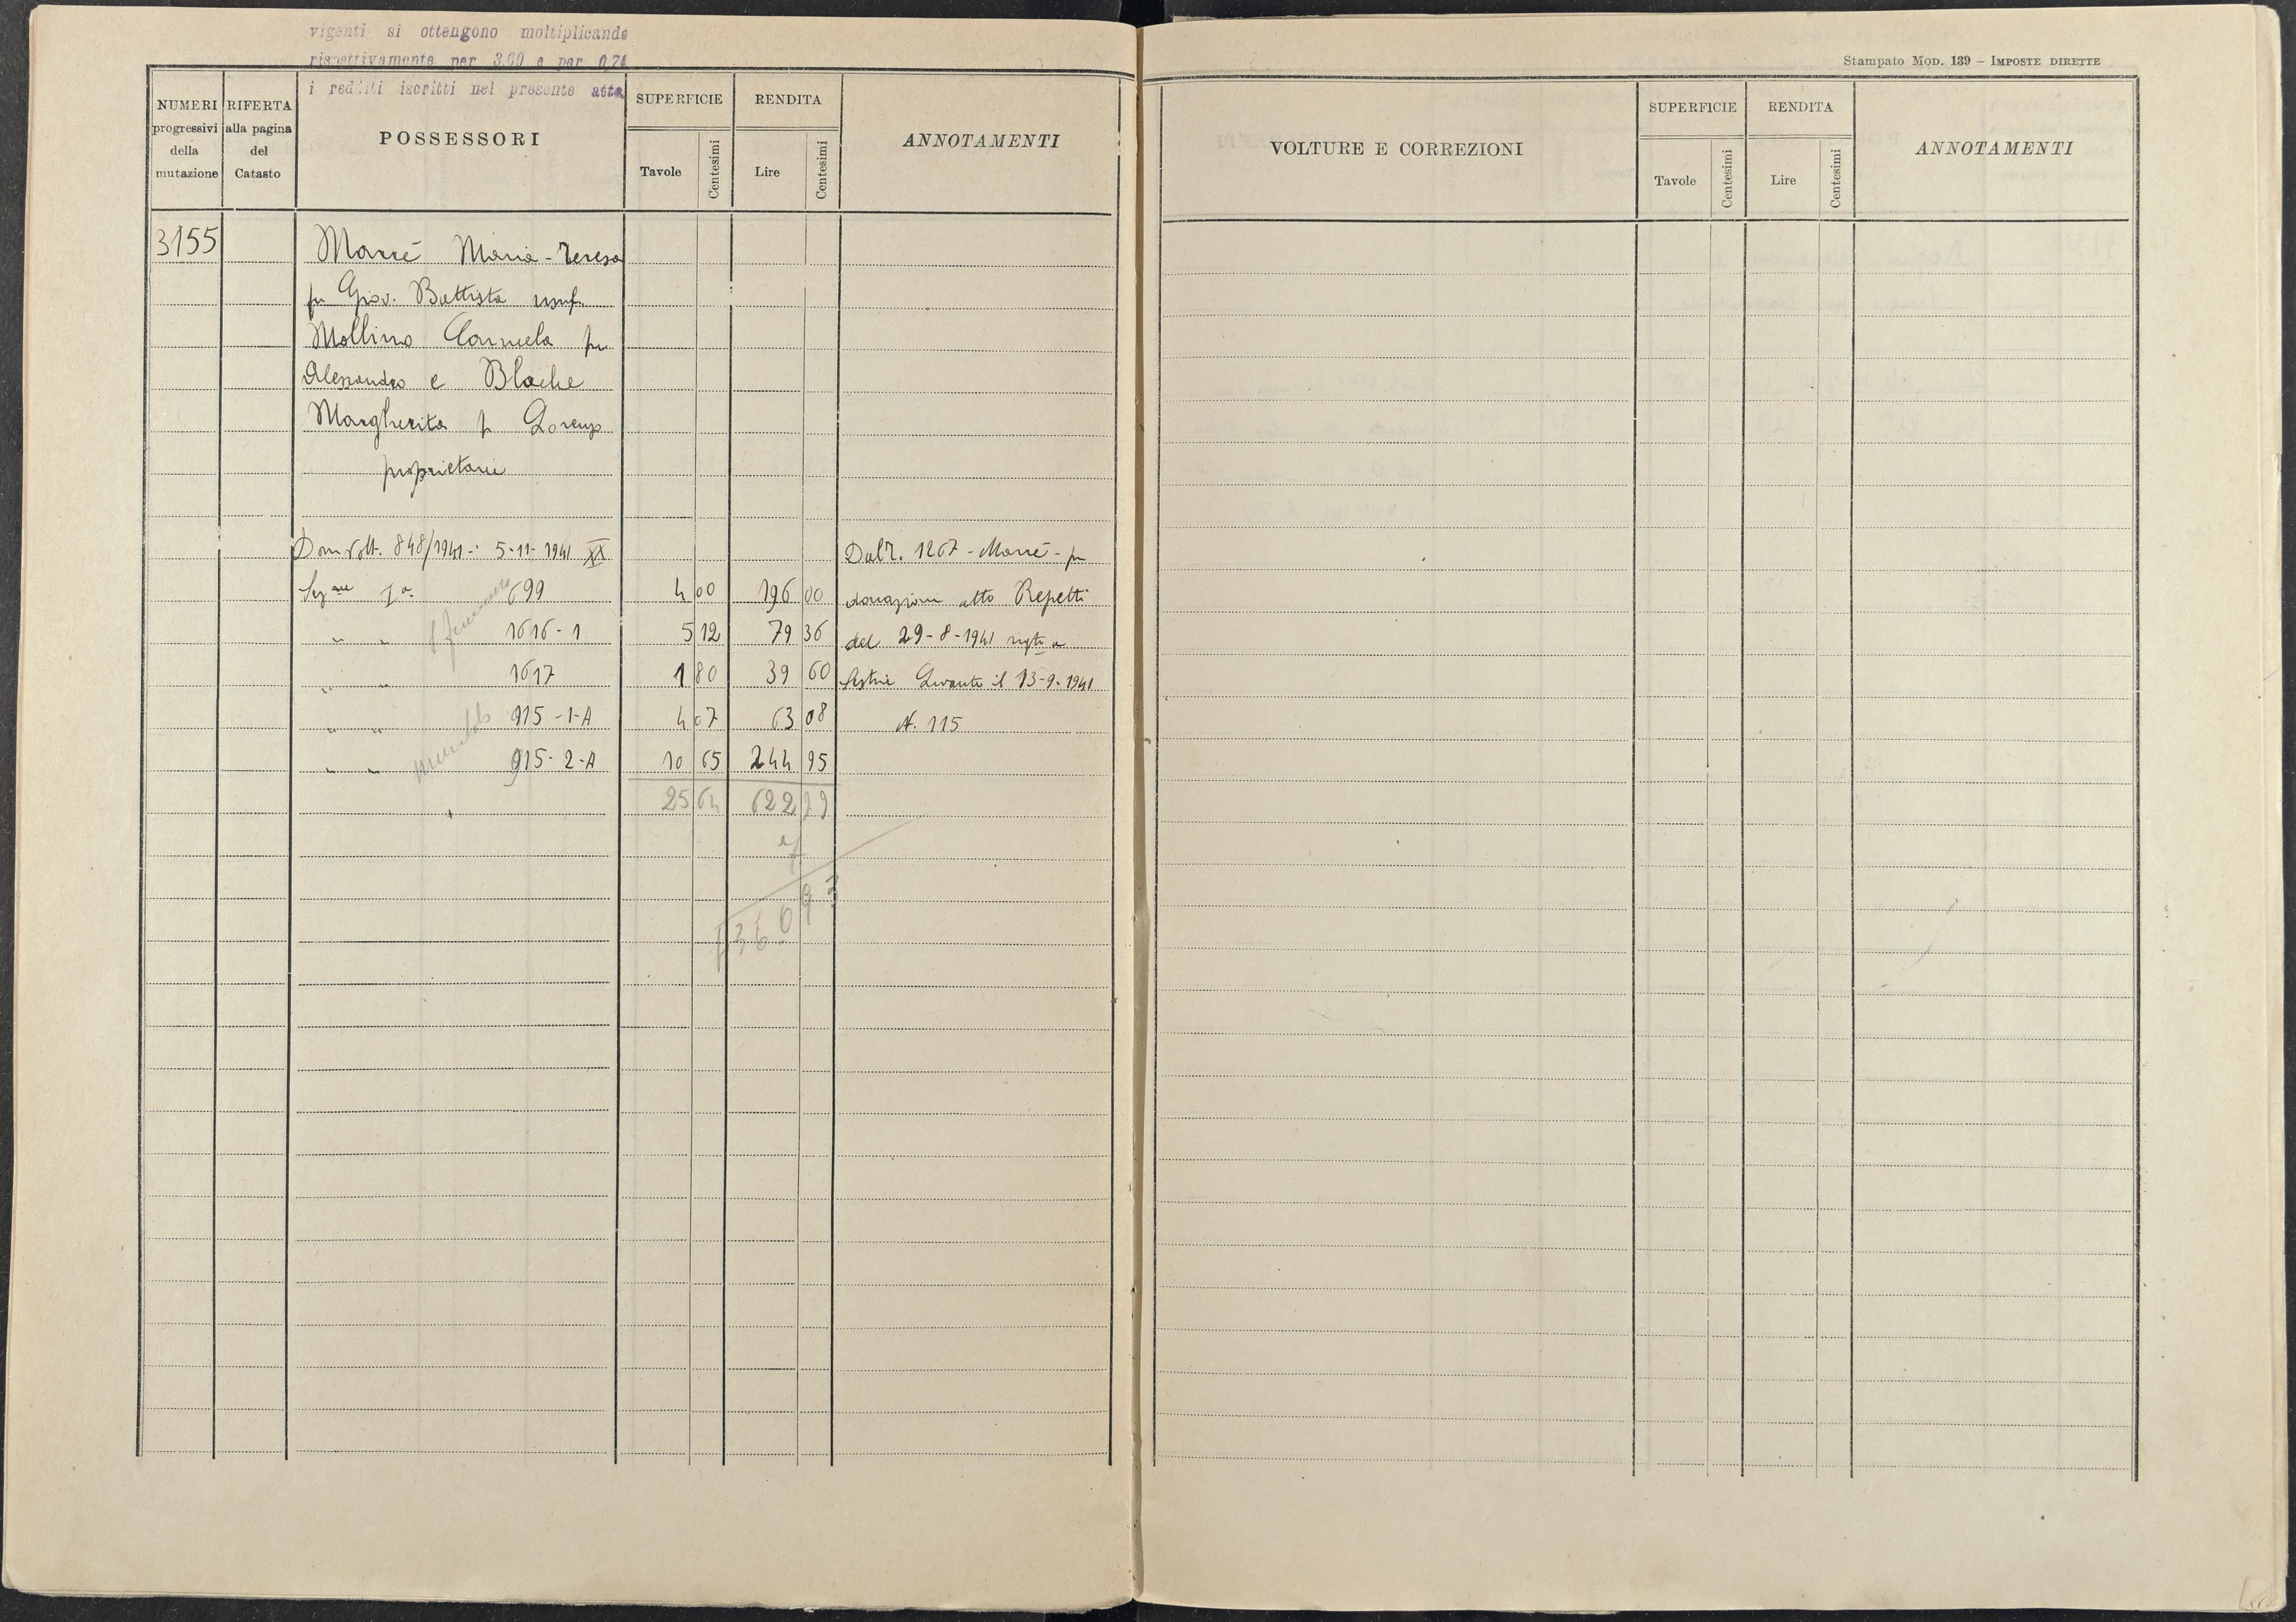 vigenti si ottengono moltiplicando
rispettivamente per 3,00 e per 0,74
i redditi iscritti nel presente atto.
NUMERI progressivi della mutazione
RIFERTA alla pagina del Catasto
POSSESSORI
SUPERFICIE
Tavole Centesimi
RENDITA
Lire Centesimi
ANNOTAMENTI
3155
Marrè Maria-Teresa
fu Giov. Battista usuf.
Mollino Carmela fu
Alessandro e Blache
Margherita f Lorenzo
proprietarie
Dom Volt. 848/1941 - 5-11-1941 XX
Sez ne Ia 699 4 00 196 00
" " 1616-1 5 12 79 36
" " 1617 1 80 39 60
" " 915-1-A 4 07 63 08
" " 915-2-A 10 65 244 95
25 64 622 99
Dal R. 1267 - Marrè - per
donazione atto Repetti
del 29-8-1941 regto a
Sestri Levante il 13-9-1941
N. 115
Stampato MOD. 139 – IMPOSTE DIRETTE
VOLTURE E CORREZIONI
SUPERFICIE
Tavole Centesimi
RENDITA
Lire Centesimi
ANNOTAMENTI